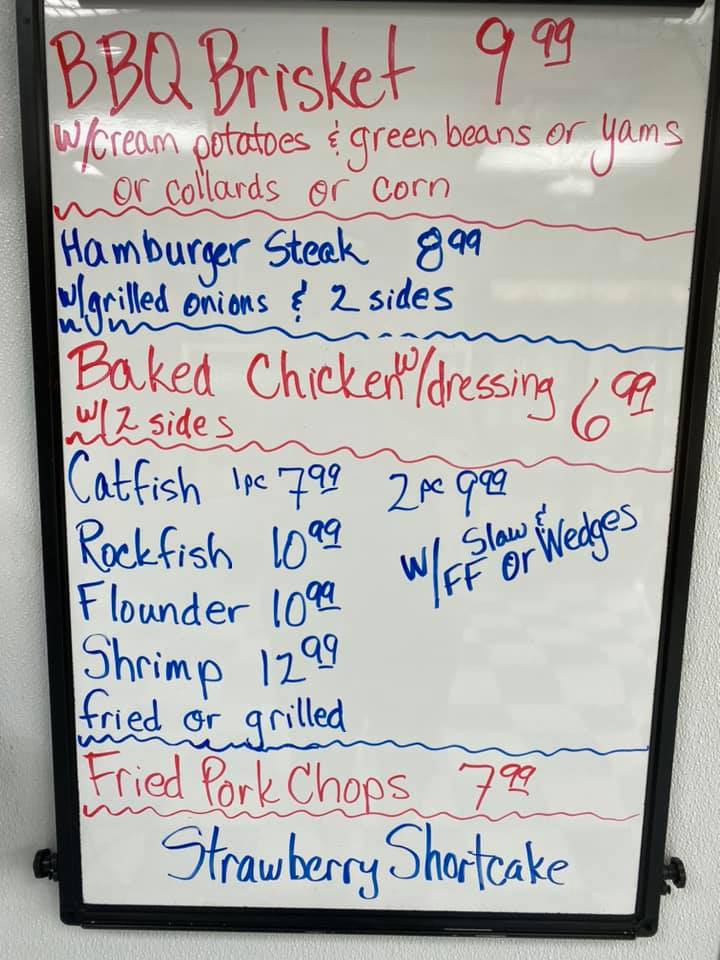 BBQ Brisket 9 99
w/cream potatoes & green beans or yams
or collards or corn
Hamburger Steak 8 99
w/grilled onions & 2 sides
Baked Chicken w/dressing 6 99
w/2 sides
Catfish 1pc 7 99 2 pc 9 99
Rockfish 10 99
w/ Slaw &
FF or Wedges
Flounder 10 99
Shrimp 12 99
fried or grilled
Fried Pork Chops 7 99
Strawberry Shortcake